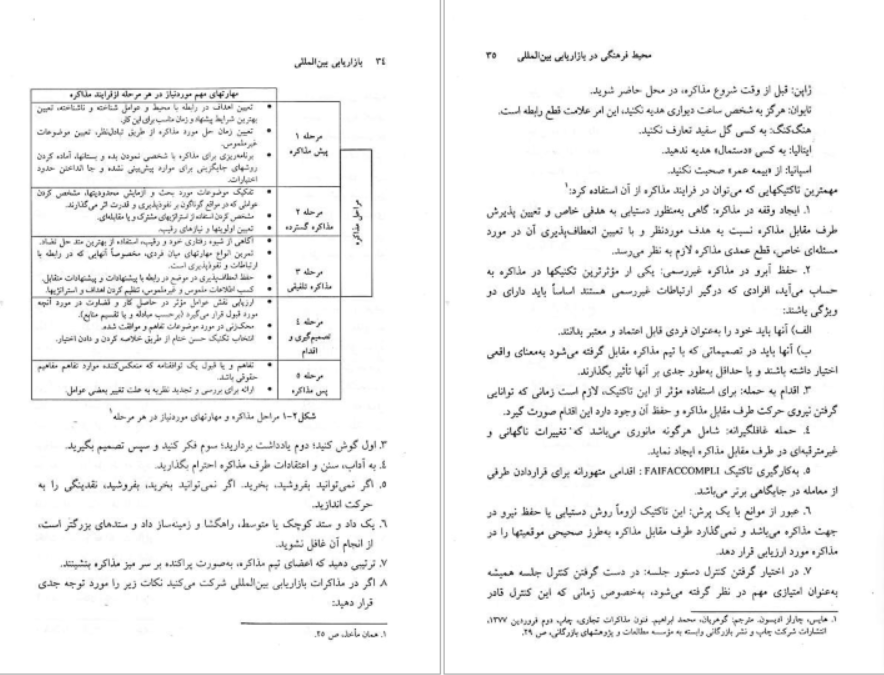 ۳٤ بازاریابی بین‌المللی
مهارتهای مهم موردنیاز در هر مرحله ازفرایند مذاکره
مراحل مذاکره
مرحله ۱
پیش مذاکره
• تعیین اهداف در رابطه با محیط و عوامل شناخته و ناشناخته، تعیین
بهترین شرایط پیشنهاد و زمان مناسب برای این کار.
• تعیین زمان حل مورد مذاکره از طریق تبادل‌نظر، تعیین موضوعات
غیرملموس.
• برنامه‌ریزی برای مذاکره با شخصی نمودن بده و بستانها، آماده کردن
روشهای جایگزینی برای موارد پیش‌بینی نشده و جا انداختن حدود
اختیارات.
مرحله ۲
مذاکره گسترده
• تفکیک موضوعات مورد بحث و ازمایش محدودیتها، مشخص کردن
عواملی که در مواقع گوناگون بر نفوذپذیری و قدرت اثر می‌گذارند.
• مشخص کردن استفاده از استراتژیهای مشترک و یا مقابله‌ای.
• تعیین اولویتها و نیازهای رقیب.
مرحله ۳
مذاکره تلفیقی
• آگاهی از شیوه رفتاری خود و رقیب، استفاده از بهترین متد حل تضاد.
• تمرین انواع مهارتهای میان فردی، مخصوصاً آنهایی که در رابطه با
ارتباطات و نفوذپذیری است.
• حفظ انعطاف‌پذیری در موضع در رابطه با پیشنهادات و پیشنهادات متقابل.
• کسب اطلاعات ملموس و غیرملموس، تنظیم کردن اهداف و استراتژیها.
مرحله ٤
تصمیم‌گیری و
اقدام
• ارزیابی نقش عوامل مؤثر در حاصل کار و قضاوت در مورد آنچه
مورد قبول قرار می‌گیرد (برحسب مبادله و یا تقسیم منابع).
• محک‌زنی در مورد موضوعات تفاهم و موافقت شده.
• انتخاب تکنیک حسن ختام از طریق خلاصه کردن و دادن اختیار.
مرحله ٥
پس مذاکره
• تفاهم و یا قبول یک توافقنامه که منعکس‌کننده موارد تفاهم مفاهیم
حقوقی باشد.
• ارائه برای بررسی و تجدید نظریه به علت تغییر بعضی عوامل.
شکل۲-۱ مراحل مذاکره و مهارتهای موردنیاز در هر مرحله۱
۳. اول گوش کنید؛ دوم یادداشت بردارید؛ سوم فکر کنید و سپس تصمیم بگیرید.
٤. به آداب، سنن و اعتقادات طرف مذاکره احترام بگذارید.
٥. اگر نمی‌توانید بفروشید، بخرید. اگر نمی‌توانید بخرید، بفروشید، نقدینگی را به
حرکت اندازید.
٦. یک داد و ستد کوچک یا متوسط، راهگشا و زمینه‌ساز داد و ستدهای بزرگتر است،
از انجام آن غافل نشوید.
۷. ترتیبی دهید که اعضای تیم مذاکره، به‌صورت پراکنده بر سر میز مذاکره بنشینند.
۸. اگر در مذاکرات بازاریابی بین‌المللی شرکت می‌کنید نکات زیر را مورد توجه جدی
قرار دهید:
۱. همان مأخذ، ص ۲۵.
محیط فرهنگی در بازاریابی بین‌المللی ۳٥
ژاپن: قبل از وقت شروع مذاکره، در محل حاضر شوید.
تایوان: هرگز به شخص ساعت دیواری هدیه نکنید، این امر علامت قطع رابطه است.
هنگ‌کنگ: به کسی گل سفید تعارف نکنید.
ایتالیا: به کسی «دستمال» هدیه ندهید.
اسپانیا: از «بیمه عمر» صحبت نکنید.
مهمترین تاکتیکهایی که می‌توان در فرایند مذاکره از آن استفاده کرد:۱
۱. ایجاد وقفه در مذاکره: گاهی به‌منظور دستیابی به هدفی خاص و تعیین پذیرش
طرف مقابل مذاکره نسبت به هدف موردنظر و با تعیین انعطاف‌پذیری آن در مورد
مسئله‌ای خاص، قطع عمدی مذاکره لازم به نظر می‌رسد.
۲. حفظ آبرو در مذاکره غیررسمی: یکی از مؤثرترین تکنیکها در مذاکره به
حساب می‌آید، افرادی که درگیر ارتباطات غیررسمی هستند اساساً باید دارای دو
ویژگی باشند:
الف) آنها باید خود را به‌عنوان فردی قابل اعتماد و معتبر بدانند.
ب) آنها باید در تصمیماتی که با تیم مذاکره مقابل گرفته می‌شود به‌معنای واقعی
اختیار داشته باشند و یا حداقل به‌طور جدی بر آنها تأثیر بگذارند.
۳. اقدام به حمله: برای استفاده مؤثر از این تاکتیک، لازم است زمانی که توانایی
گرفتن نیروی حرکت طرف مقابل مذاکره و حفظ آن وجود دارد این اقدام صورت گیرد.
٤. حمله غافلگیرانه: شامل هرگونه مانوری می‌باشد که تغییرات ناگهانی و
غیرمترقبه‌ای در طرف مقابل مذاکره ایجاد نماید.
٥. به‌کارگیری تاکتیک FAIFACCOMPLI: اقدامی متهورانه برای قراردادن طرفی
از معامله در جایگاهی برتر می‌باشد.
٦. عبور از موانع با یک پرش: این تاکتیک لزوماً روش دستیابی یا حفظ نیرو در
جهت مذاکره می‌باشد و نمی‌گذارد طرف مقابل مذاکره به‌طرز صحیحی موقعیتها را در
مذاکره مورد ارزیابی قرار دهد.
۷. در اختیار گرفتن کنترل دستور جلسه: در دست گرفتن کنترل جلسه همیشه
به‌عنوان امتیازی مهم در نظر گرفته می‌شود، به‌خصوص زمانی که این کنترل قادر
۱. هایس، چارلز ادیسون. مترجم: گوهریان، محمد ابراهیم. فنون مذاکرات تجاری. چاپ دوم فروردین ۱۳۷۷،
انتشارات شرکت چاپ و نشر بازرگانی وابسته به مؤسسه مطالعات و پژوهشهای بازرگانی، ص ۲۹.